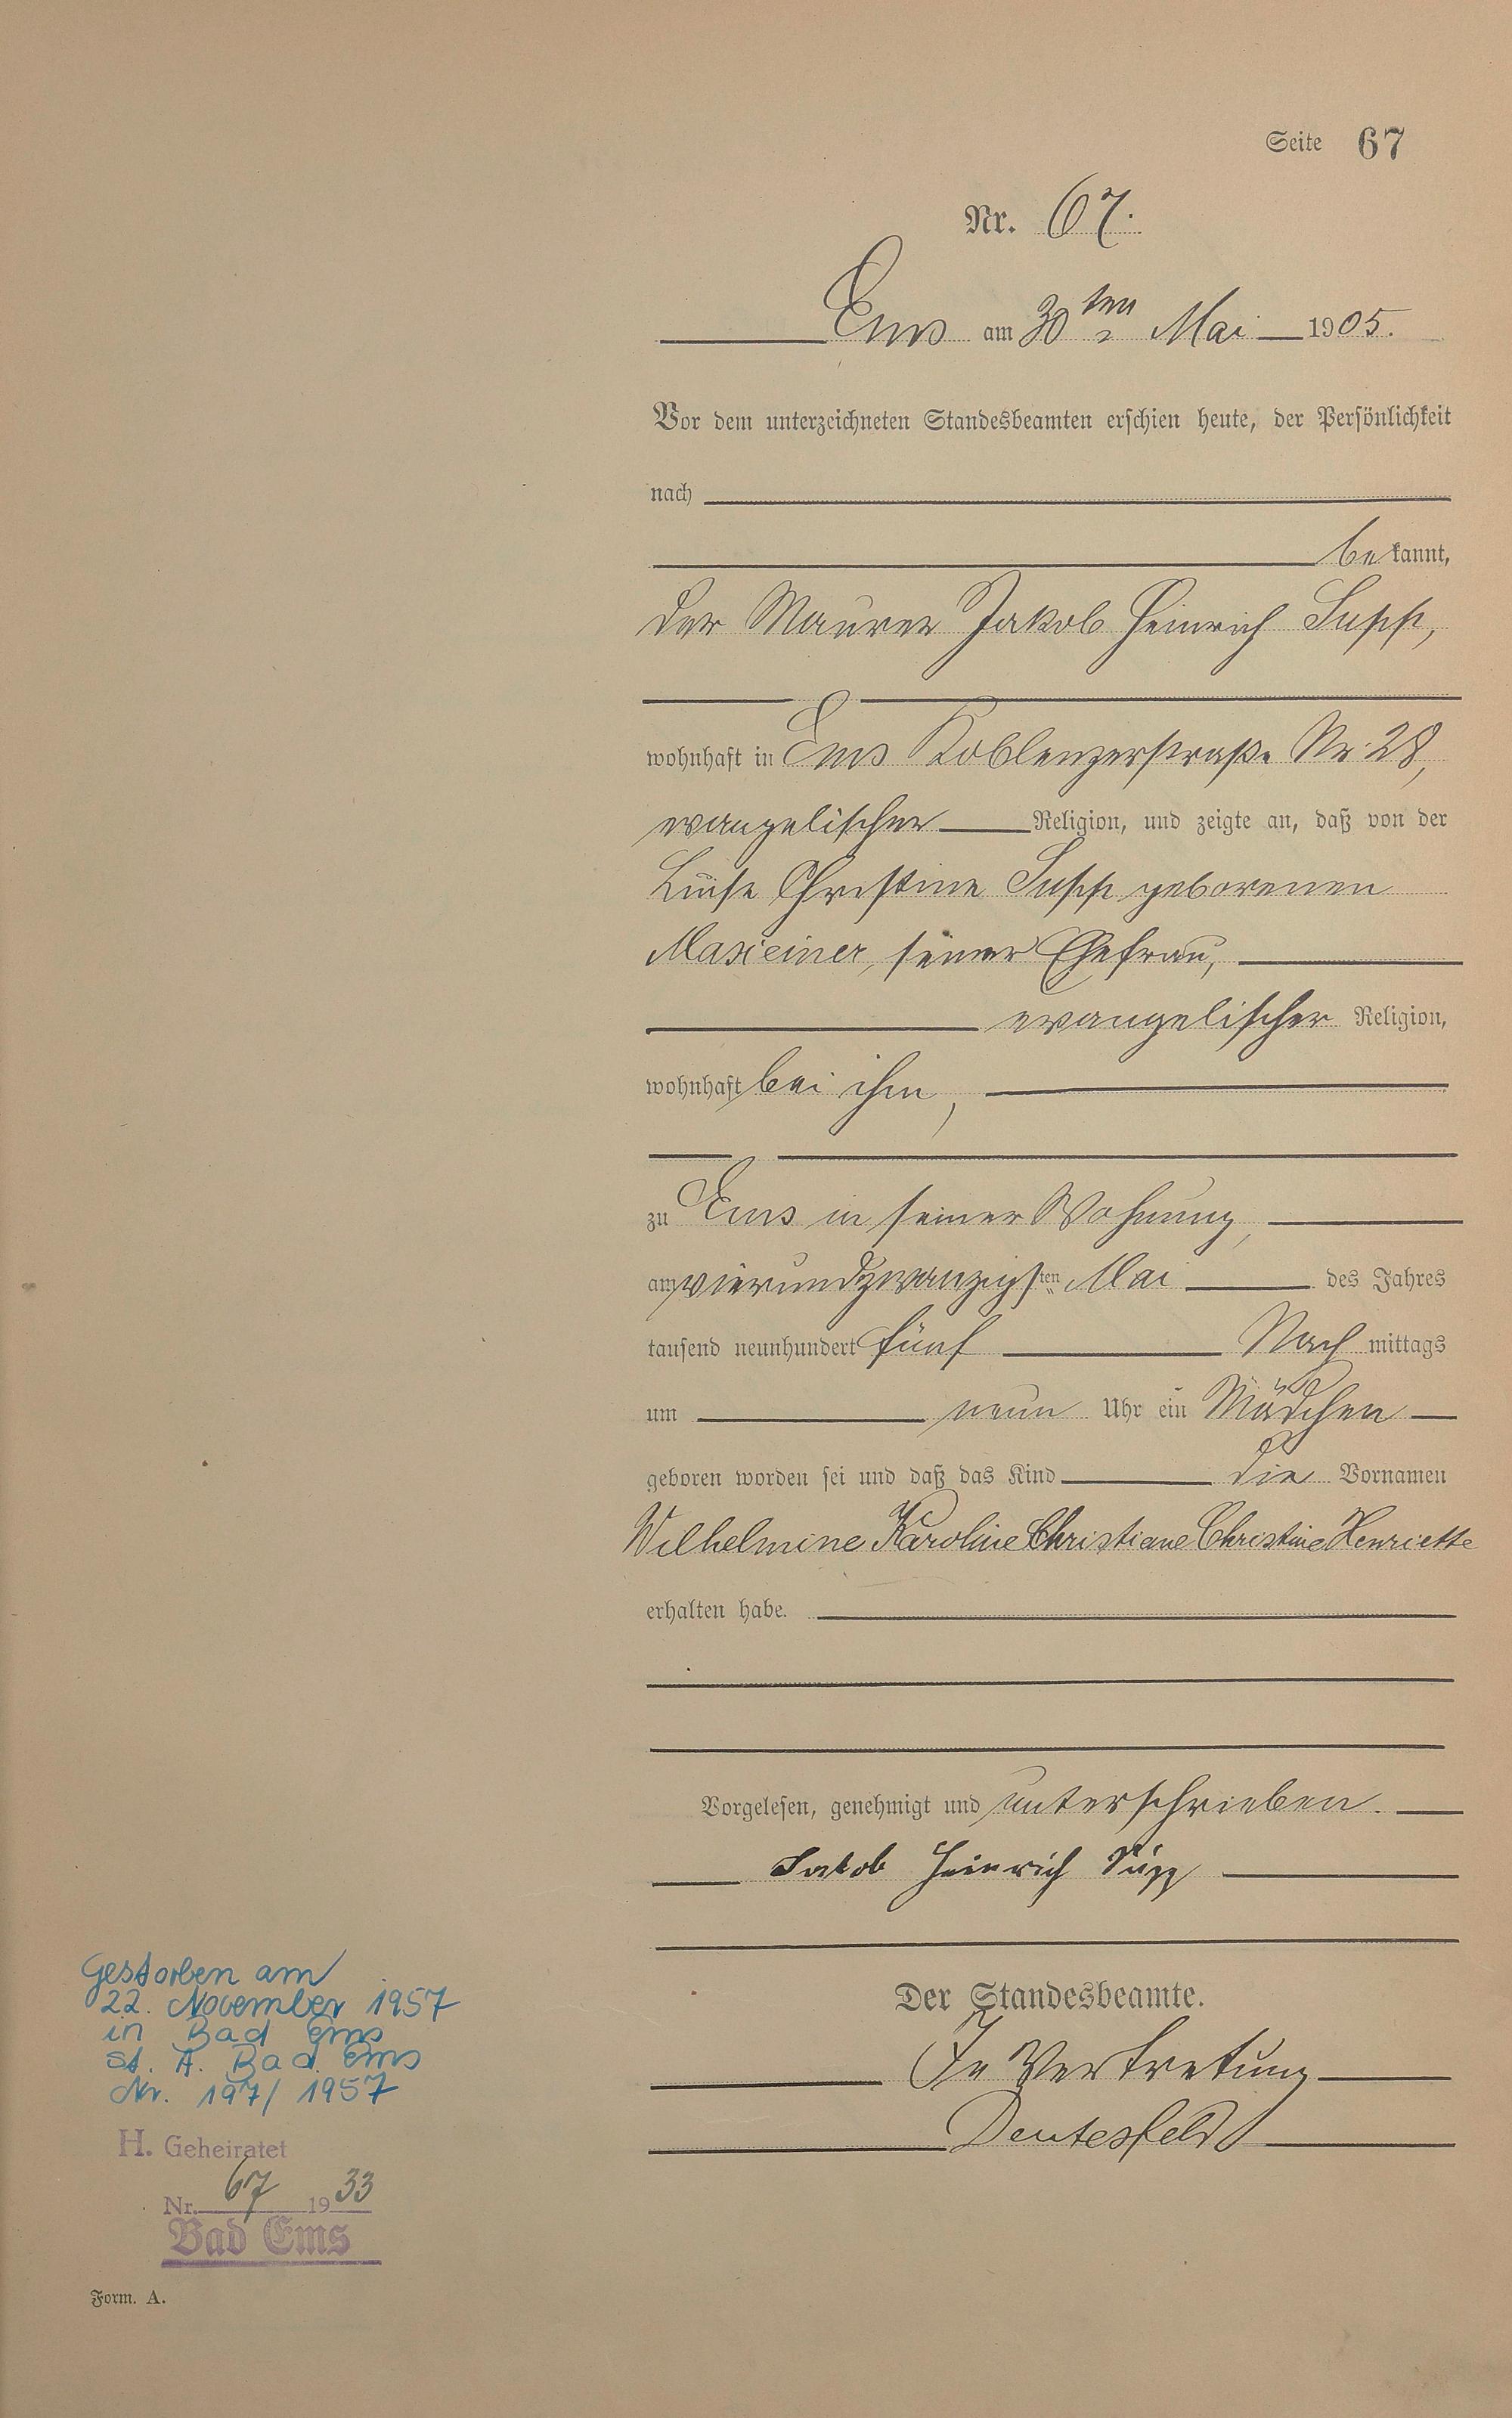 Seite 67
Nr. 67.
Ems am 30ten Mai 1905.
Vor dem unterzeichneten Standesbeamten erschien heute, der Persönlichkeit
nach
bekannt,
der Maurer Jakob Heinrich Supp,
wohnhaft in Ems Koblenzerstraße Nr. 28,
evangelischer Religion, und zeigte an, daß von der
Luise Christine Supp geborenen
seiner Ehefrau,
evangelischer Religion,
wohnhaft bei ihm,
zu Ems in seiner Wohnung,
am vierundzwanzigsten Mai des Jahres
tausend neunhundert fünf Nachmittags
um neun Uhr ein Mädchen
geboren worden sei und daß das Kind die Vornamen
Wilhelmine Karoline Christiane Christine Henriette
erhalten habe.
Vorgelesen, genehmigt und unterschrieben.
Jakob Heinrich Supp
Der Standesbeamte.
In Vertretung
Deutesfeld
Gestorben am
22. November 1957
in Bad Ems
St. A. Bad Ems
Nr. 197/1957
H. Geheiratet
Nr. 67 1933
Bad Ems
Form. A.